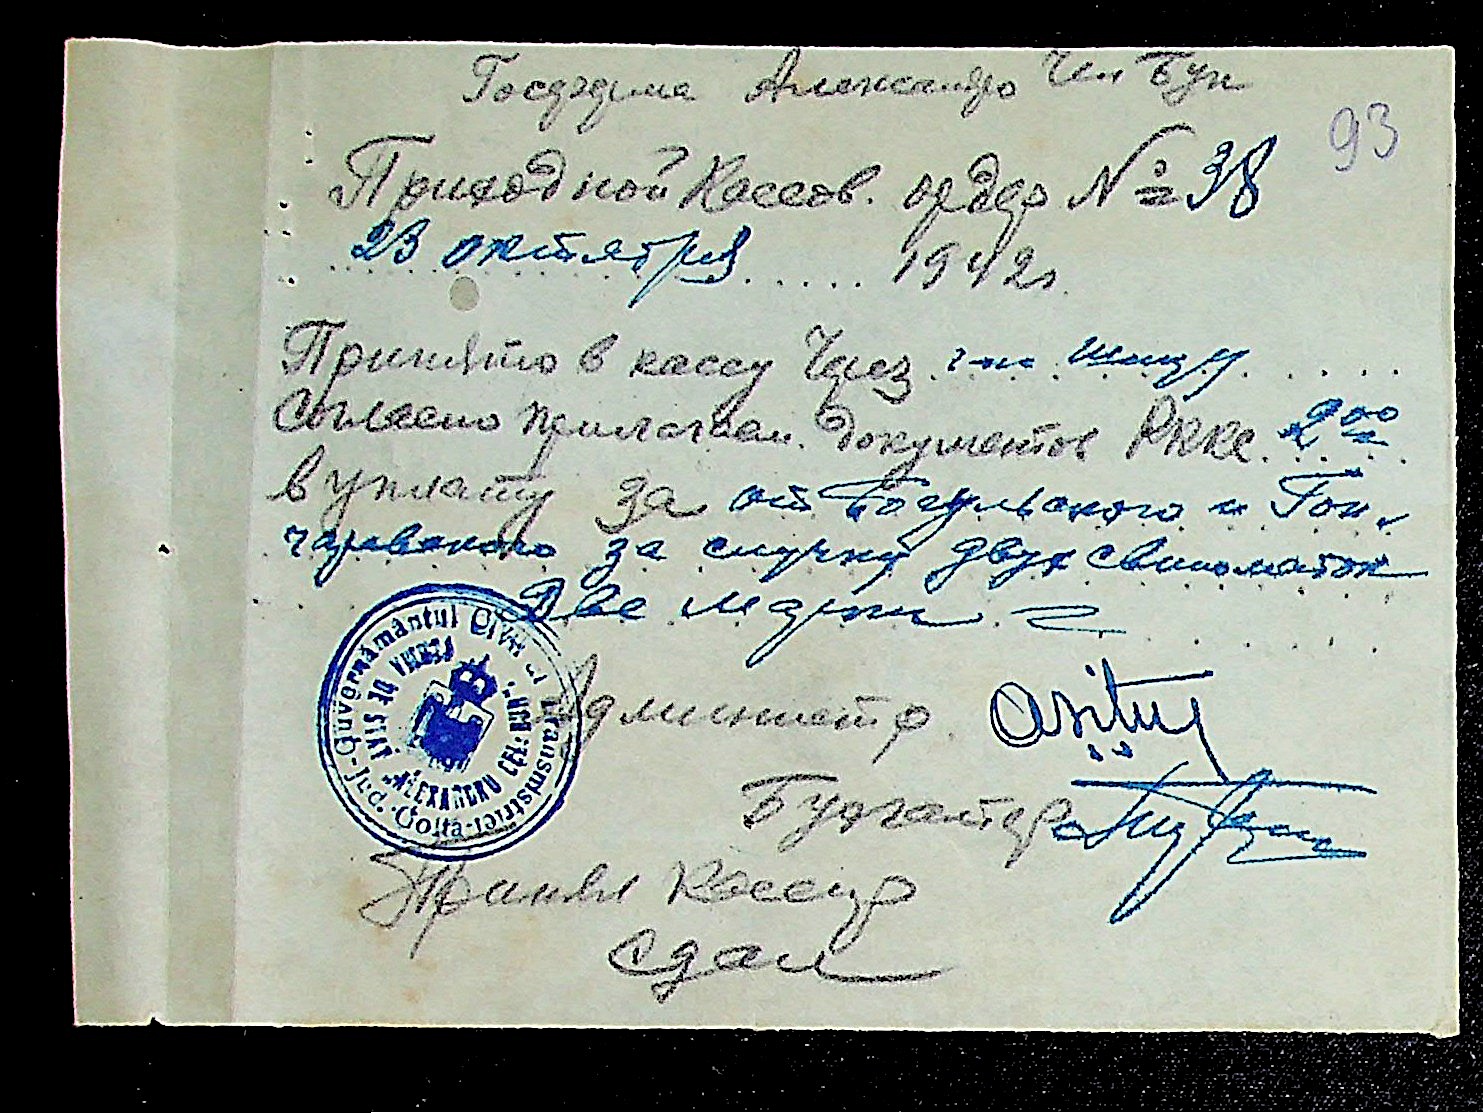 Госферма Александро Чел Бун
93
Приходной Кассов. ордер № 38
23 октября 1942 г.
Принято в кассу Через г-на
Согласно прилагаем. документов РККС. 2 00
в уплату за от Богульского и Гон-
чаровского за случку двух свиноматок
Две марки
Guvernământul Civil al Transnistriei
Jud. Golta
ALEXANDRU CEL BUN
Администр.
Бухгалтер
Принял Кассир
Сдал